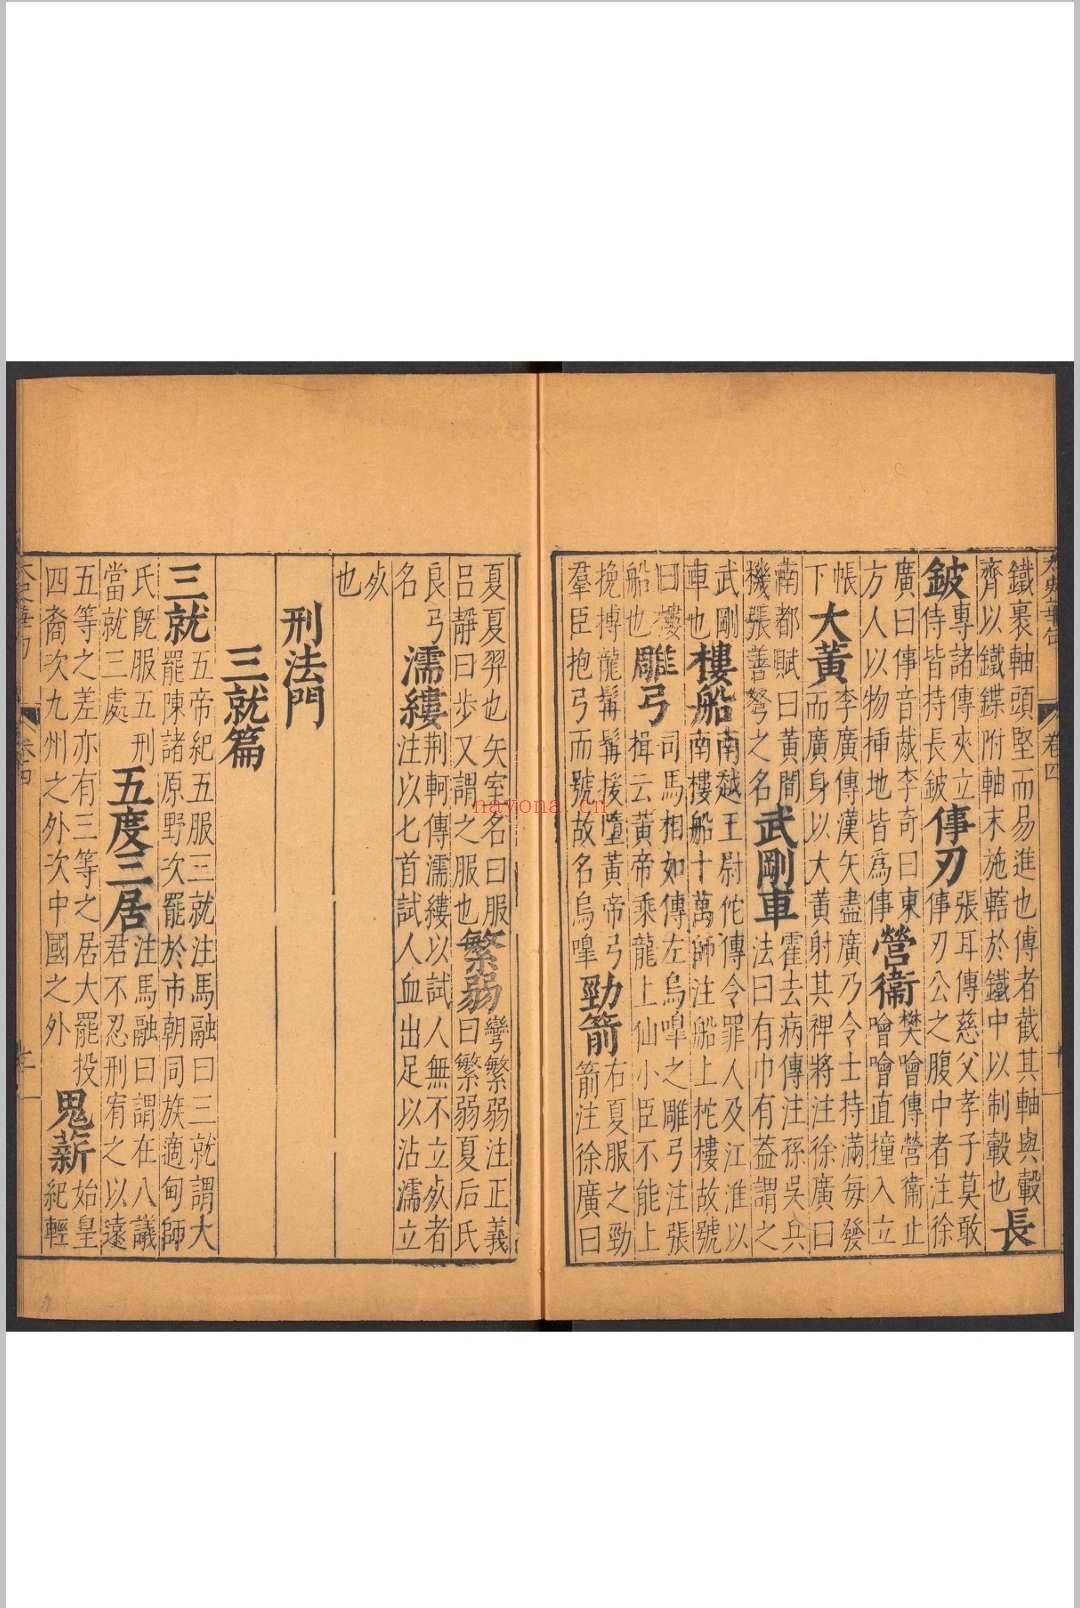 鐵裹軸頭堅而易進也傅者截其軸與轂
齊以鐵鍱附軸末施轄於鐵中以制轂也 長
鈹 專諸傳夾立
侍皆持長鈹 傳刃 張耳傳慈父孝子莫敢
傳刃公之腹中者注徐
廣曰傳音胾李奇曰東
方人以物揷地皆爲傳 營衞 樊噲傳營衞止
噲噲直撞入立
帳
下 大黃 李廣傳漢矢盡廣乃令士持滿每發
而廣身以大黃射其裨將注徐廣曰
南都賦曰黃間
機張善弩之名 武剛車 霍去病傳注孫吳兵
法曰有巾有葢謂之
武剛
車也 樓船 南越王尉佗傳令罪人及江淮以
南樓船十萬師注船上柁樓故號
曰樓
船也 雕弓 司馬相如傳左烏嘷之雕弓注張
揖云黃帝乘龍上仙小臣不能上
挽摶龍髯髯援墮黃帝弓
羣臣抱弓而號故名烏嘷 勁箭 右夏服之勁
箭注徐廣曰
夏夏羿也矢室名曰服
呂靜曰步又謂之服也 繁弱 彎繁弱注正義
曰繁弱夏后氏
良弓
名 濡縷 荆軻傳濡縷以試人無不立死者
注以匕首試人血出足以沾濡立
死
也
刑法門
三就篇
三就 五帝紀五服三就注馬融曰三就謂大
罷陳諸原野次罷於市朝同族適甸師
氏旣服五刑
當就三處 五度三居 注馬融曰謂在八議
君不忍刑宥之以遠
五等之差亦有三等之居大罷投
四裔次九州之外次中國之外 鬼薪 始皇
紀輕
卷四
nayona.cn